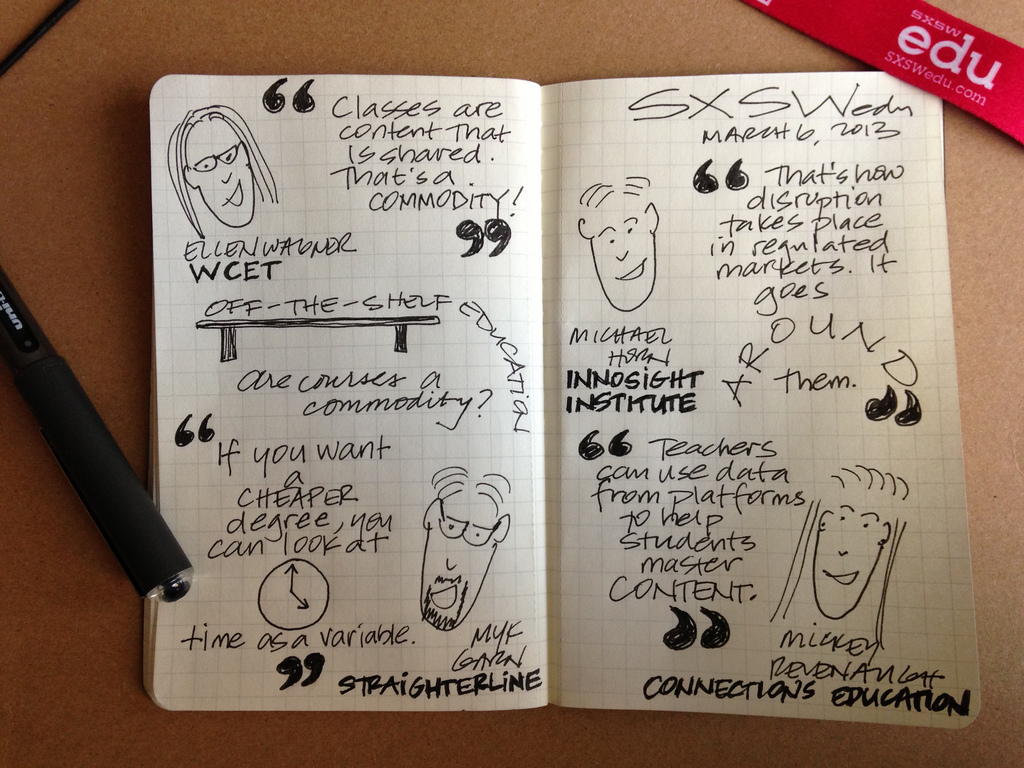 “ Classes are
content that
is shared.
That's a
COMMODITY! ”
ELLEN WAGNER
WCET
OFF-THE-SHELF
EDUCATION
are courses a
commodity?
“ If you want
a
CHEAPER
degree, you
can look at
time as a variable. ”
MYK
GARN
STRAIGHTERLINE
SXSWedu
MARCH 6, 2013
“ That's how
disruption
takes place
in regulated
markets. It
goes
AROUND
them. ”
MICHAEL
HORN
INNOSIGHT
INSTITUTE
“ Teachers
can use data
from platforms
to help
students
master
CONTENT. ”
MICKEY
REVENAUGH
CONNECTIONS EDUCATION
sxsw
edu
SXSWedu.com
uni